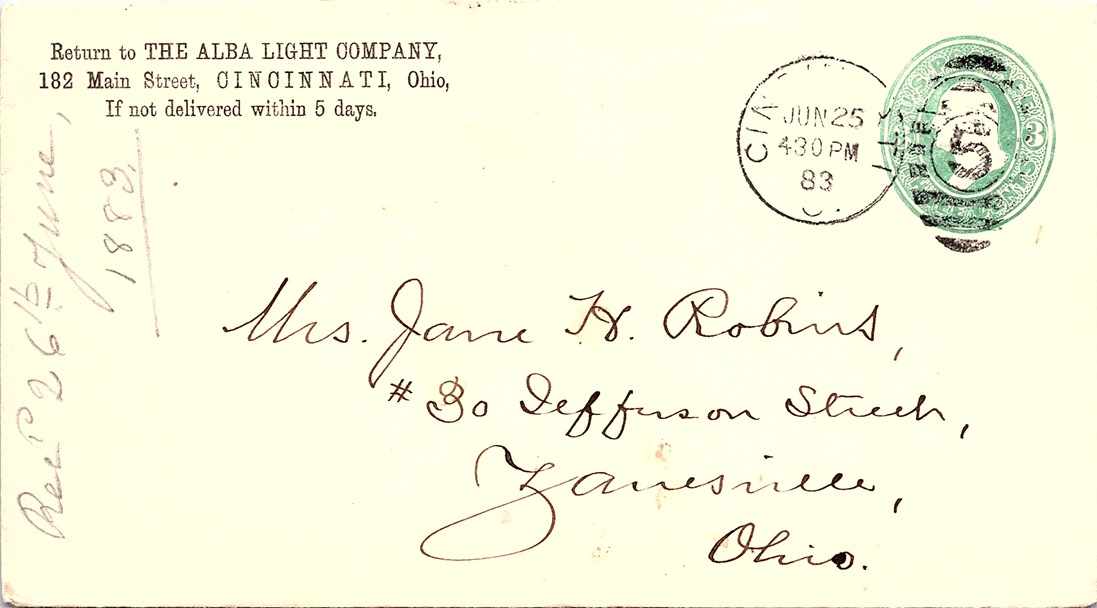 Return to THE ALBA LIGHT COMPANY,
182 Main Street, CINCINNATI, Ohio,
If not delivered within 5 days.
JUN 25
430 PM
83
5
3
Mrs. Jane H. Robins,
# 30 Jefferson Street,
Zanesville,
Ohio.
Recd 26th June,
1883.